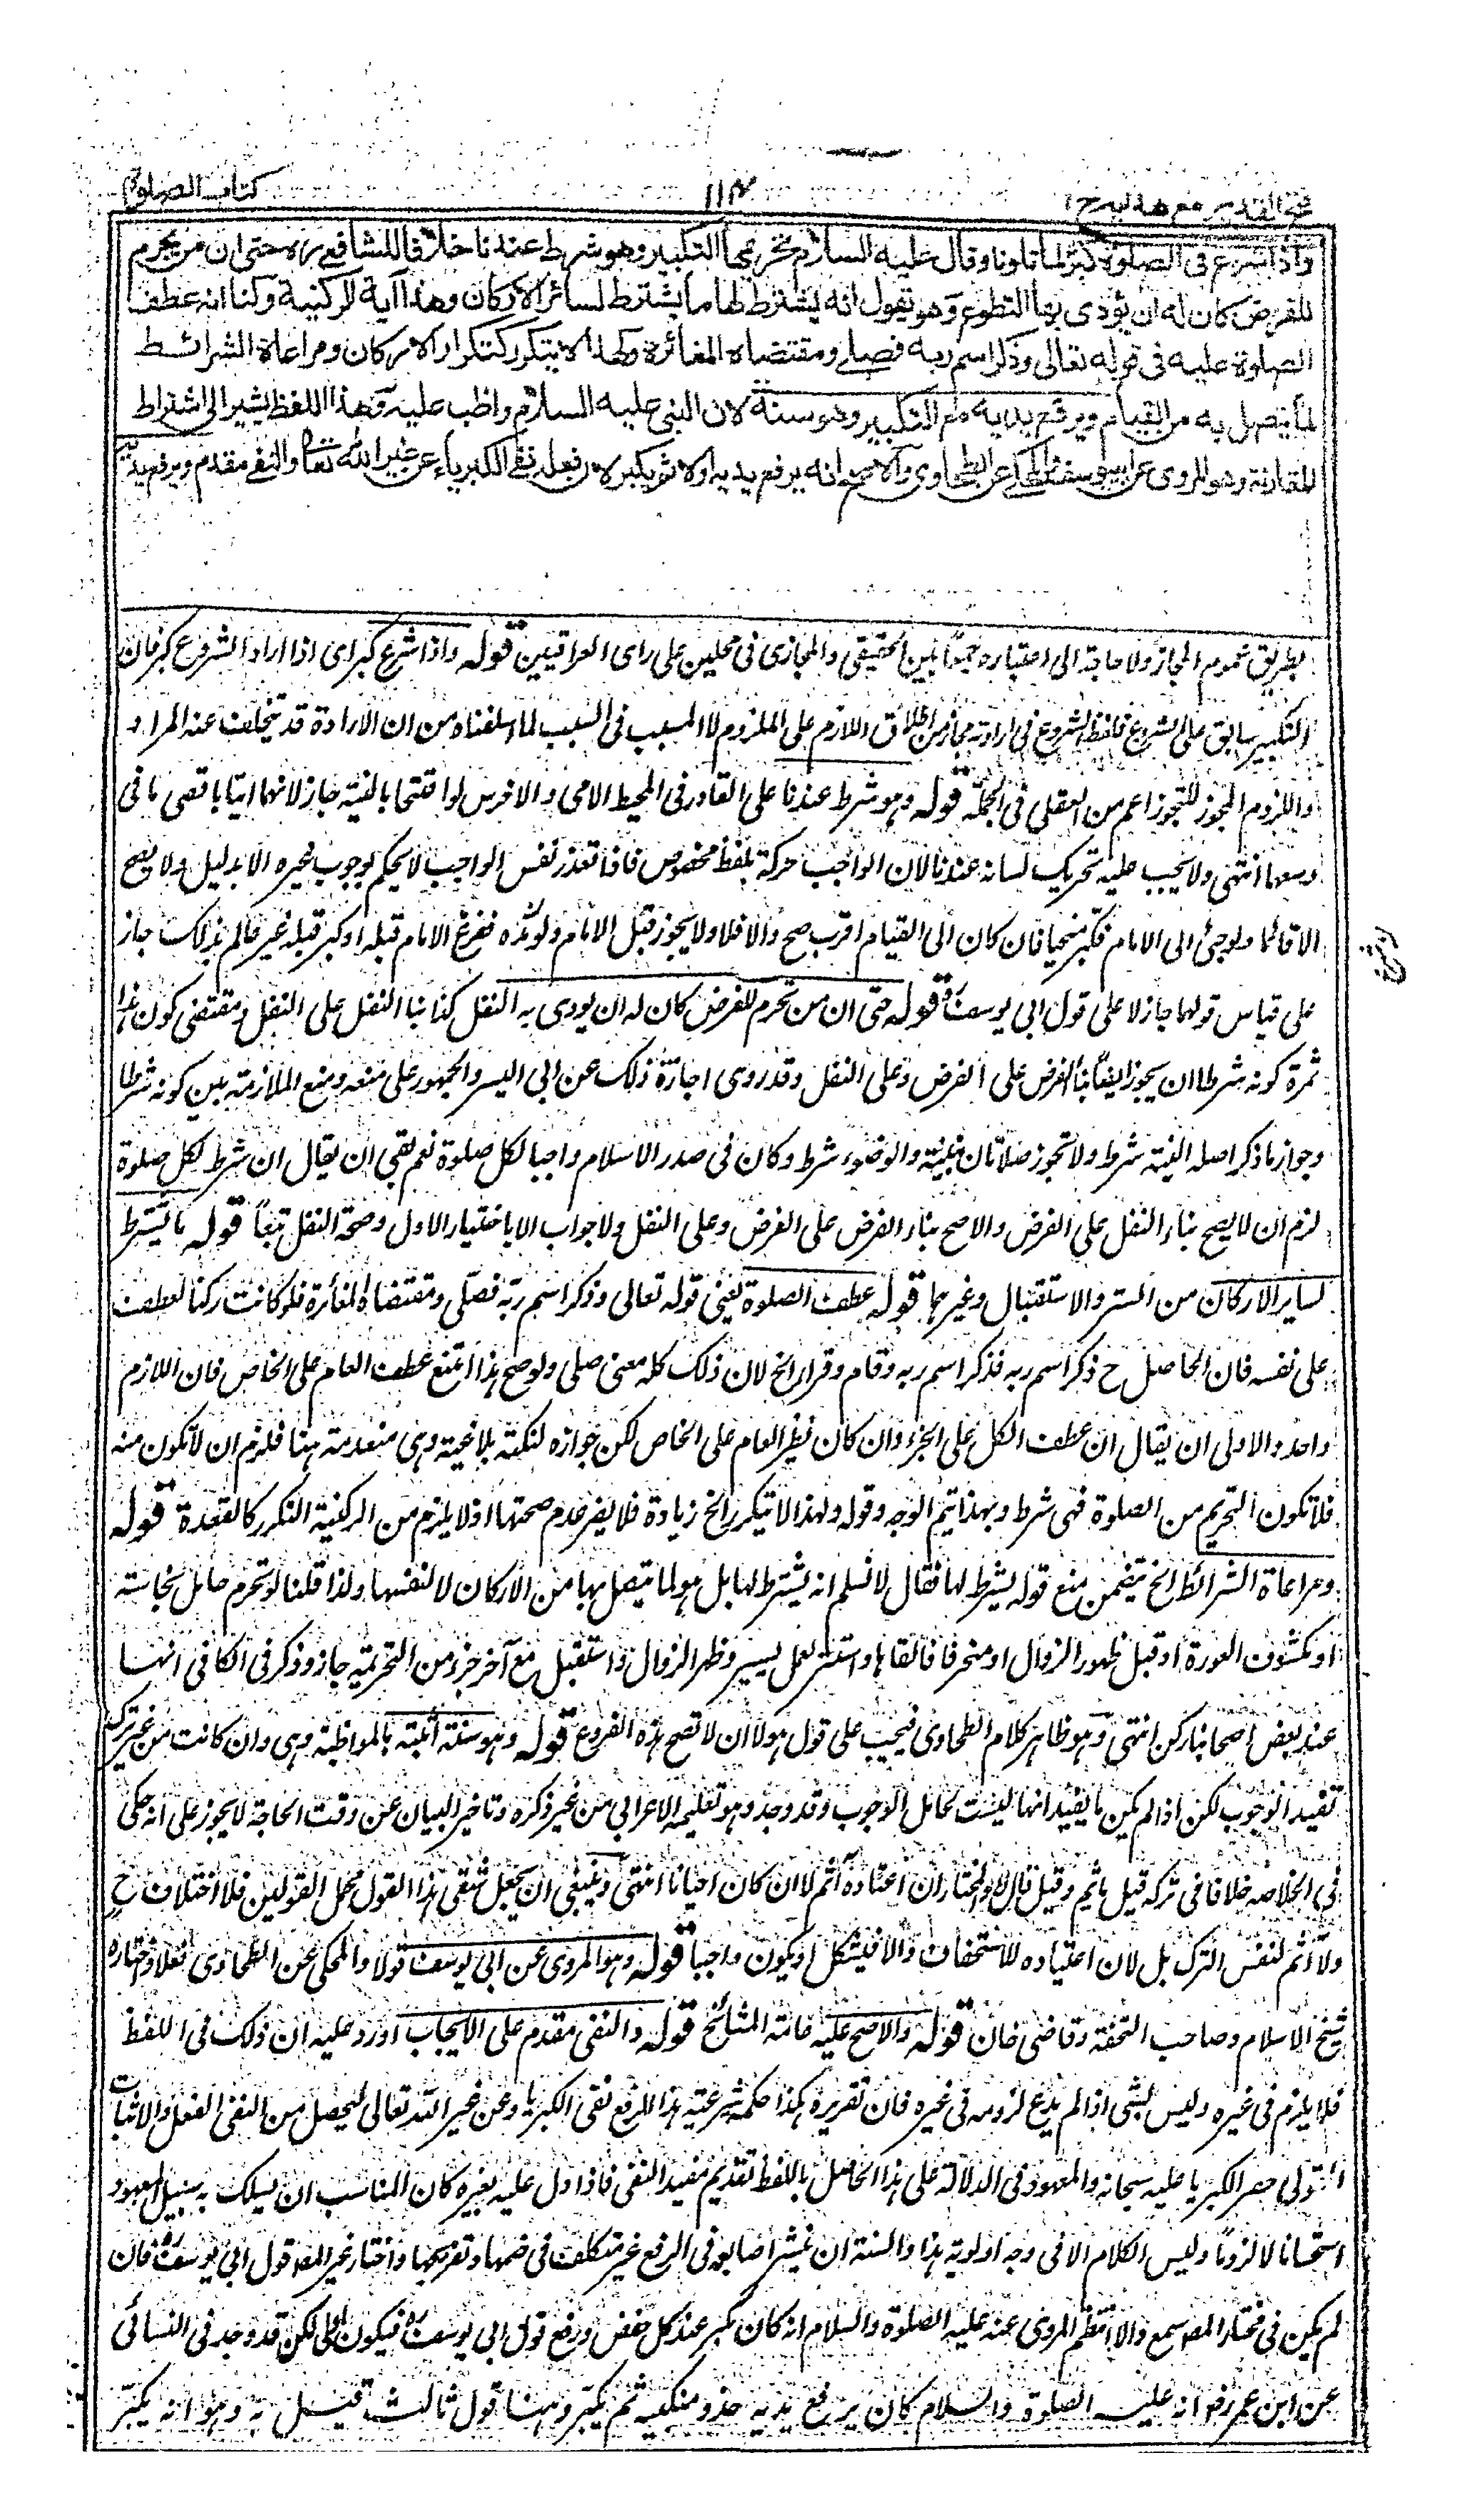 فتح القدير مع هدايه ج ١
١١٣
كتاب الصلوة
واذا شرع فى الصلوة كبر لما تلونا وقال عليه السلام تحريمها التكبير وهو شرط عندنا خلافا للشافعي ره حتى ان من يحرم
للفرض كان له ان يؤدى بها التطوع وهو يقول انه يشترط لها ما يشترط لسائر الاركان وهذا آية الركنية ولنا انه عطف
الصلوة عليه فى قوله تعالى وذكر اسم ربه فصلے ومقتضاه المغائرة ولهذا لا يتكرر كتكرار الاركان ومراعاة الشرائط
لما يتصل به من القيام ويرفع يديه مع التكبير وهو سنة لان النبى عليه السلام واظب عليه وهذا اللفظ يشير الى اشتراط
المقارنة وهو المروى عن ابى يوسف والمحكے عن الطحاوى والاصح انه يرفع يديه اولا ثم يكبر لان فعله نفے الكبرياء عن غير الله تعالى والنفے مقدم ويرفع يديه
بطريق عموم المجاز ولا حاجة الى اعتباره جمعا بين الحقيقى والمجازى فى محلين على راى العراقيين قوله واذا شرع كبر اى اذا اراد الشروع كبر فان
التكبير سابق على الشروع فلفظ الشروع فى ارادته مجاز من اطلاق اللازم على الملزوم لا المسبب فى السبب لما اسلفناه من ان الارادة قد تتخلف عنه المراد
واللزوم المجوز للتجوز اعم من العقلى فى الجملة قوله وهو شرط عندنا على القادر فى المحيط الامى والاخرس لو افتتحا بالنية جاز لانهما اتيا باقصى ما فى
وسعهما انتهى ولا يجب عليه تحريك لسانه عندنا لان الواجب حركة بلفظ مخصوص فاذا تعذر نفس الواجب لا يحكم بوجوب غيره الا بدليل ولا يصح
الا قائما ولو جئ الى الامام فكبر منحنيا فان كان الى القيام اقرب صح والا فلا ولا يجوز قبل الامام ولو مده ففرغ الامام قبله او كبر قبله غير عالم بذلك جاز
على قياس قولهما جاز لا على قول ابى يوسف ره قوله حتى ان من تحرم للفرض كان له ان يودى به النفل كذا بنا النفل على النفل ومقتضى كون هذا
ثمرة كونه شرطا ان يجوز ايضا بنا الفرض على الفرض وعلى النفل وقد روى اجازة ذلك عن ابى اليسر والجمهور على منعه ومنع الملازمة بين كونه شرطا
وجواز ما ذكر اصله النية شرط ولا تجوز صلاتان بنية والوضوء شرط وكان فى صدر الاسلام واجبا لكل صلوة نعم بقى ان يقال ان شرط لكل صلوة
لزم ان لا يصح بناء النفل على الفرض والاصح بناء الفرض على الفرض وعلى النفل ولا جواب الا باختيار الاول وصحة النفل تبعاً قوله ما يشترط
لسائر الاركان من الستر والاستقبال وغيرهما قوله عطف الصلوة يعنى قوله تعالى وذكر اسم ربه فصلى ومقتضاه المغائرة فلو كانت ركنا لعطفت
على نفسه فان الحاصل ح ذكر اسم ربه فذكر اسم ربه وقام وقرا الخ لان ذلك كله معنى صلى ولو صح هذا امتنع عطف العام على الخاص فان اللازم
واحد والاولى ان يقال ان عطف الكل على الجزء وان كان نظير العام على الخاص لكن جوازه لنكتة بلاغية وهى منعدمة ههنا فلزم ان لا تكون منه
فلا تكون التحريم من الصلوة فهى شرط وبهذا يتم الوجه وقوله ولهذا لا يتكرر الخ زيادة فلا يضر عدم صحتها اذ لا يلزم من الركنية التكرر كالقعدة قوله
ومراعاة الشرائط الخ يتضمن منع قوله يشترط لها فقال لا نسلم انه يشترط لها بل هو لما يتصل بها من الاركان لا لنفسها ولذا قلنا لو تحرم حامل نجاسة
او مكشوف العورة او قبل ظهور الزوال او منحرفا فالقاها واستتر بعمل يسير وظهر الزوال واستقبل مع آخر جزء من التحريمة جاز وذكر فى الكافى انها
عند بعض اصحابنا ركن انتهى وهو ظاهر كلام الطحاوى فيجب على قول هولا ان لا تصح هذه الفروع قوله وهو سنة اثبته بالمواظبة وهى وان كانت من غير ترك
تفيد الوجوب لكن اذا لم يكن ما يفيد انها ليست لحامل الوجوب وقد وجد وهو تعليمه الاعرابى من غير ذكره وتاخير البيان عن وقت الحاجة لا يجوز على انه حكى
فى الخلاصه خلافا فى تركه قيل ياثم وقيل لا قال والمختار ان اعتاده اثم لا ان كان احيانا انتهى وينبغى ان يجعل شقى هذا القول محمل القولين فلا اختلاف ح
ولا اثم لنفس الترك بل لان اعتياده للاستخفاف والا فيشكل او يكون واجبا قوله وهو المروى عن ابى يوسف قولا والمحكى عن الطحاوى فعلا واختاره
شيخ الاسلام وصاحب التحفة وقاضى خان قوله والاصح عليه عامة المشائخ قوله والنفى مقدم على الايجاب اورد عليه ان ذلك فى اللفظ
فلا يلزم فى غيره وليس بشئ اذ لم يدع لزومه فى غيره فان تقريره هكذا حكمة شرعية هذا الرفع نفى الكبريا عن غير الله تعالى ليحصل من النفى الفعلى والاثبات
القولى حصر الكبريا عليه سبحانه والمعهود فى الدلالة على هذا الحاصل باللفظ تقديم مفيد النفى فاذا دل عليه بغيره كان المناسب ان يسلك به سبيل المعهود
استحسانا لا لزوما وليس الكلام الا فى وجه اولوية هذا والسنة ان ينشر اصابعه فى الرفع غير متكلف فى ضمها وتفريجها واختار غير المصـ قول ابى يوسف ره فان
لم يكن فى مختار المصـ سمع والا انتظم المروى عنه عليه الصلوة والسلام انه كان يكبر عند كل خفض ورفع قول ابى يوسف ره فيكون اولى لكن قد وجد فى النسائى
عن ابن عمر رضـ انه عليه الصلوة والسلام كان يرفع يديه حذو منكبيه ثم يكبر وههنا قول ثالث قيل به وهو انه يكبر